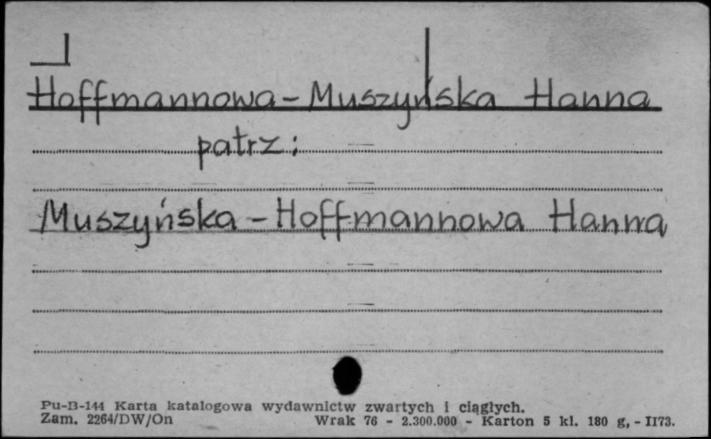 Hoffmannowa - Muszyńska Hanna
patrz:
Muszyńska - Hoffmannowa Hanna
Pu-B-144 Karta katalogowa wydawnictw zwartych i ciągłych.
Zam. 2264/DW/On Wrak 76 - 2.300.000 - Karton 5 kl. 180 g, - II73.